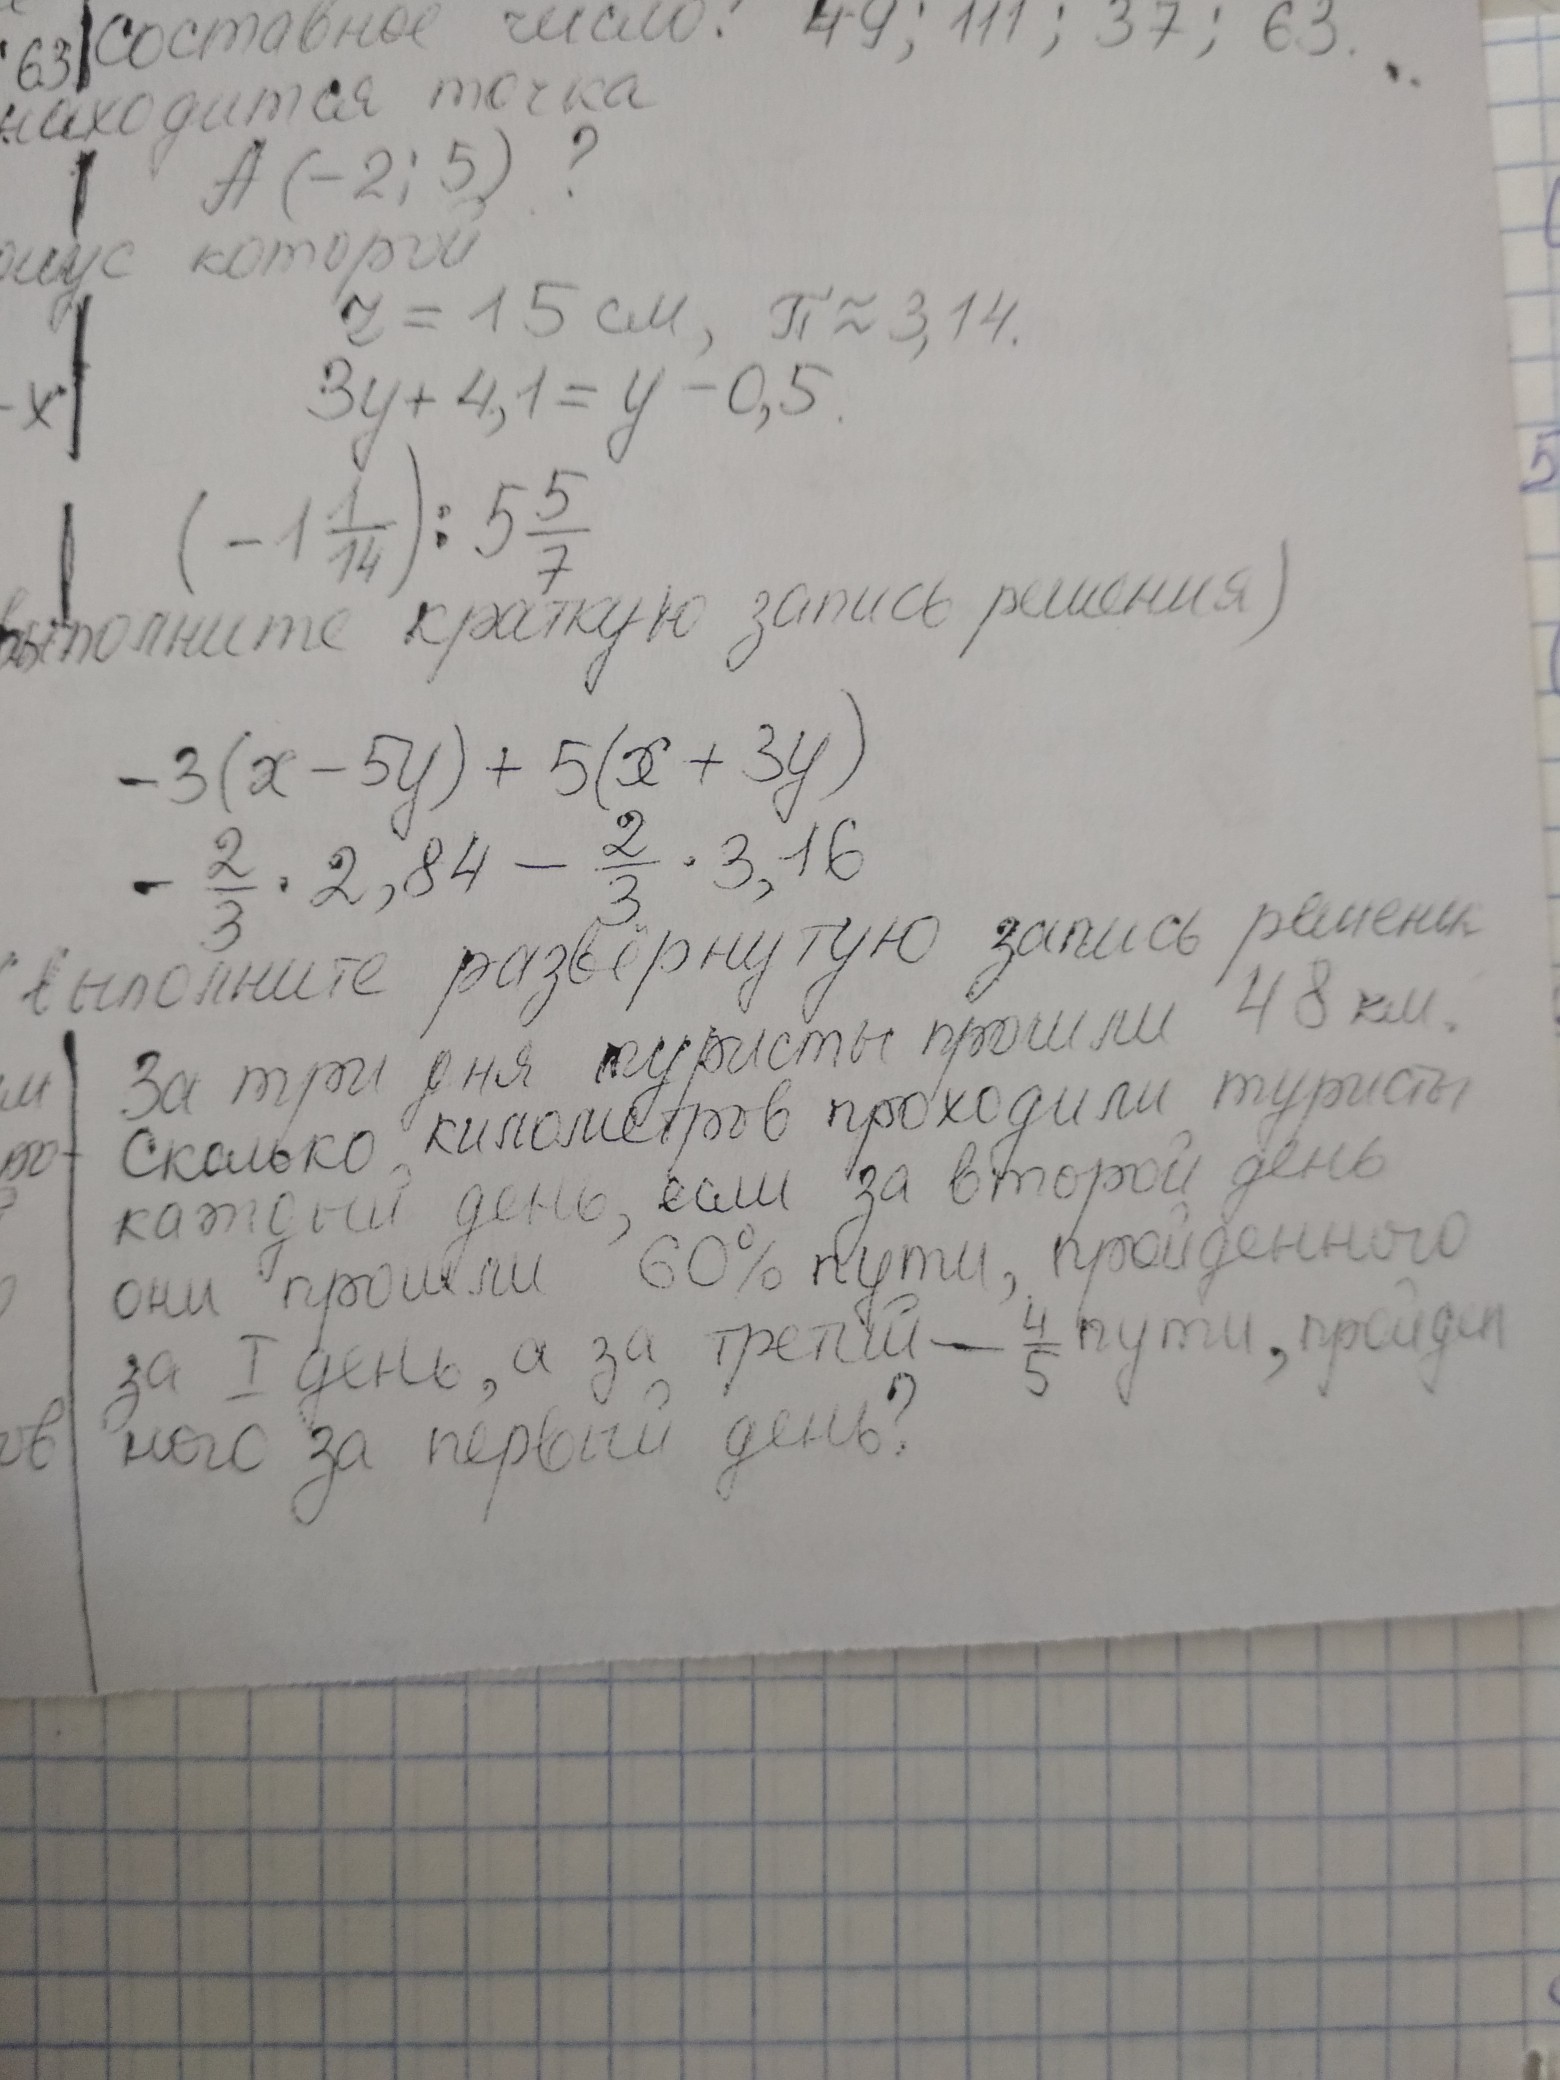 63 составное число? 49; 111; 37; 63.
находится точка
А (-2; 5) ?
которой
r = 15 см, π ≈ 3,14.
- x 3y + 4,1 = y - 0,5.
(-1 1/14) : 5 5/7
выполните краткую запись решения)
-3(x - 5y) + 5(x + 3y)
- 2/3 · 2,84 - 2/3 · 3,16
(выполните развёрнутую запись
За три дня туристы прошли 48 км.
Сколько километров проходили туристы
каждый день, если за второй день
они прошли 60% пути, пройденного
за I день, а за третий — 4/5 пути, пройден
ного за первый день?